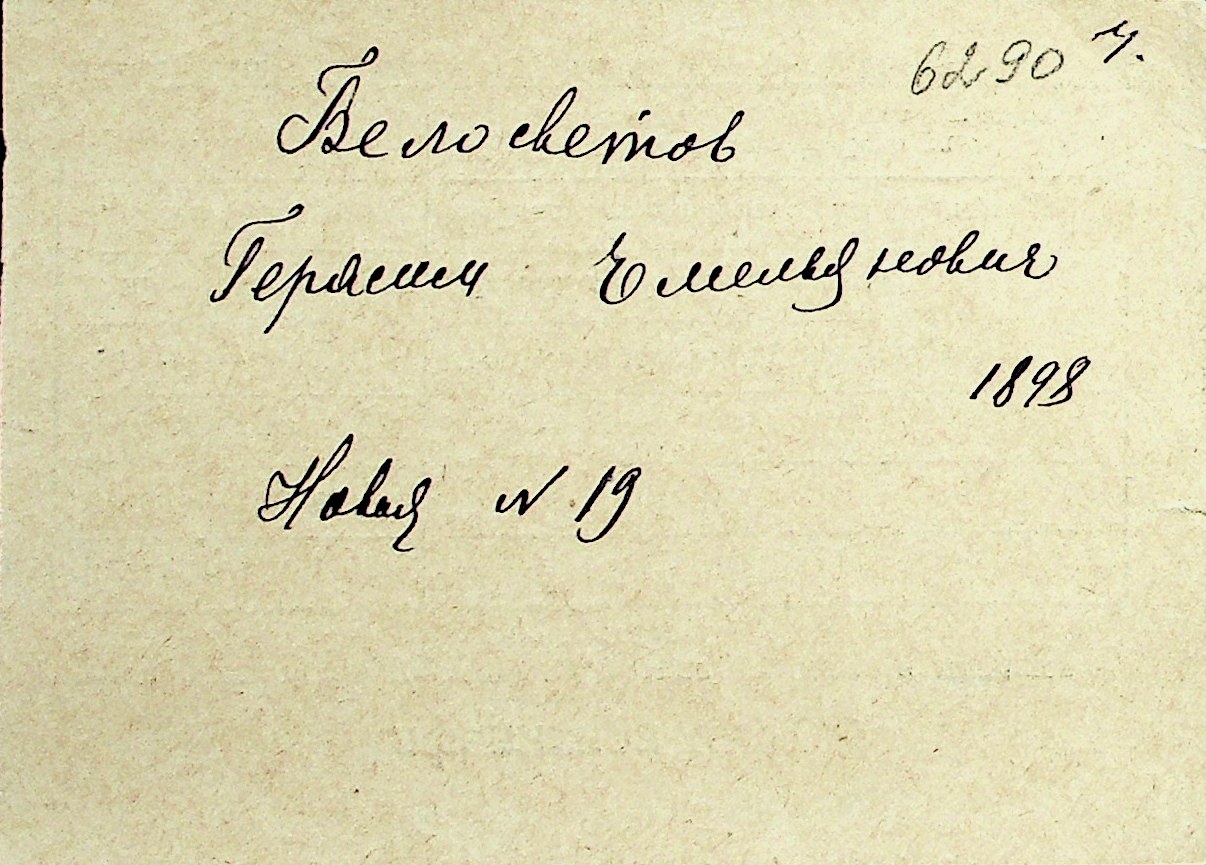 6290 ч.
Белосветов
Герасим Емельянович
1898
Новая N 19